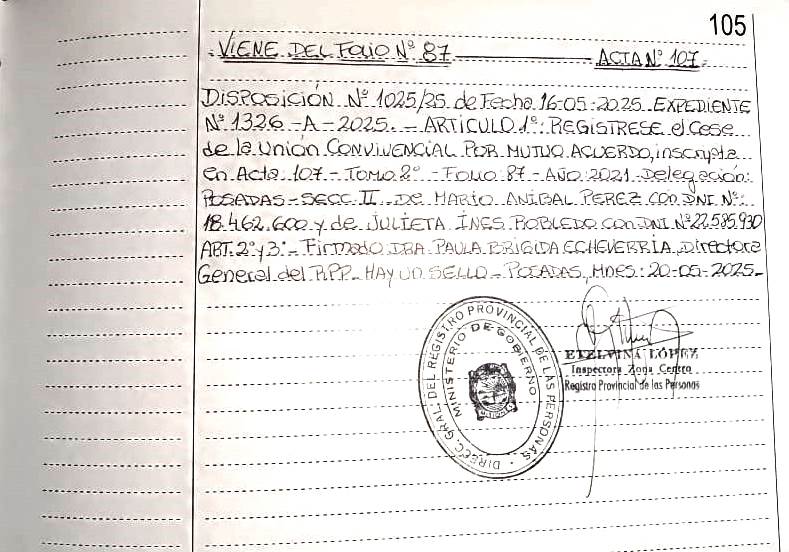 105
VIENE DEL FOLIO Nº 87 ACTA Nº 107.
DISPOSICIÓN Nº 1025/25 de Fecha 16-05-2025. EXPEDIENTE
Nº 1326-A-2025.- ARTICULO 1º: REGISTRESE el Cese
de la Unión CONVIVENCIAL POR MUTUO ACUERDO, inscripta
en Acta 107 - TOMO 2º - FOLIO 87 - AÑO 2021 - Delegación:
POSADAS - SECC. II - DE MARIO ANÍBAL PEREZ CON DNI Nº:
18.462.600 y de JULIETA INES ROBLEDO CON DNI Nº 22.585.930
ART. 2º y 3º - Firmado DRA. PAULA BRIGIDA ECHEVERRIA, Directora
General del RPP - HAY UN SELLO - POSADAS, Mnes: 20-05-2025-
DIRECC. GRAL. DEL REGISTRO PROVINCIAL DE LAS PERSONAS
MINISTERIO DE GOBIERNO
ETELVINA LÓPEZ
Inspectora Zona Centro
Registro Provincial de las Personas